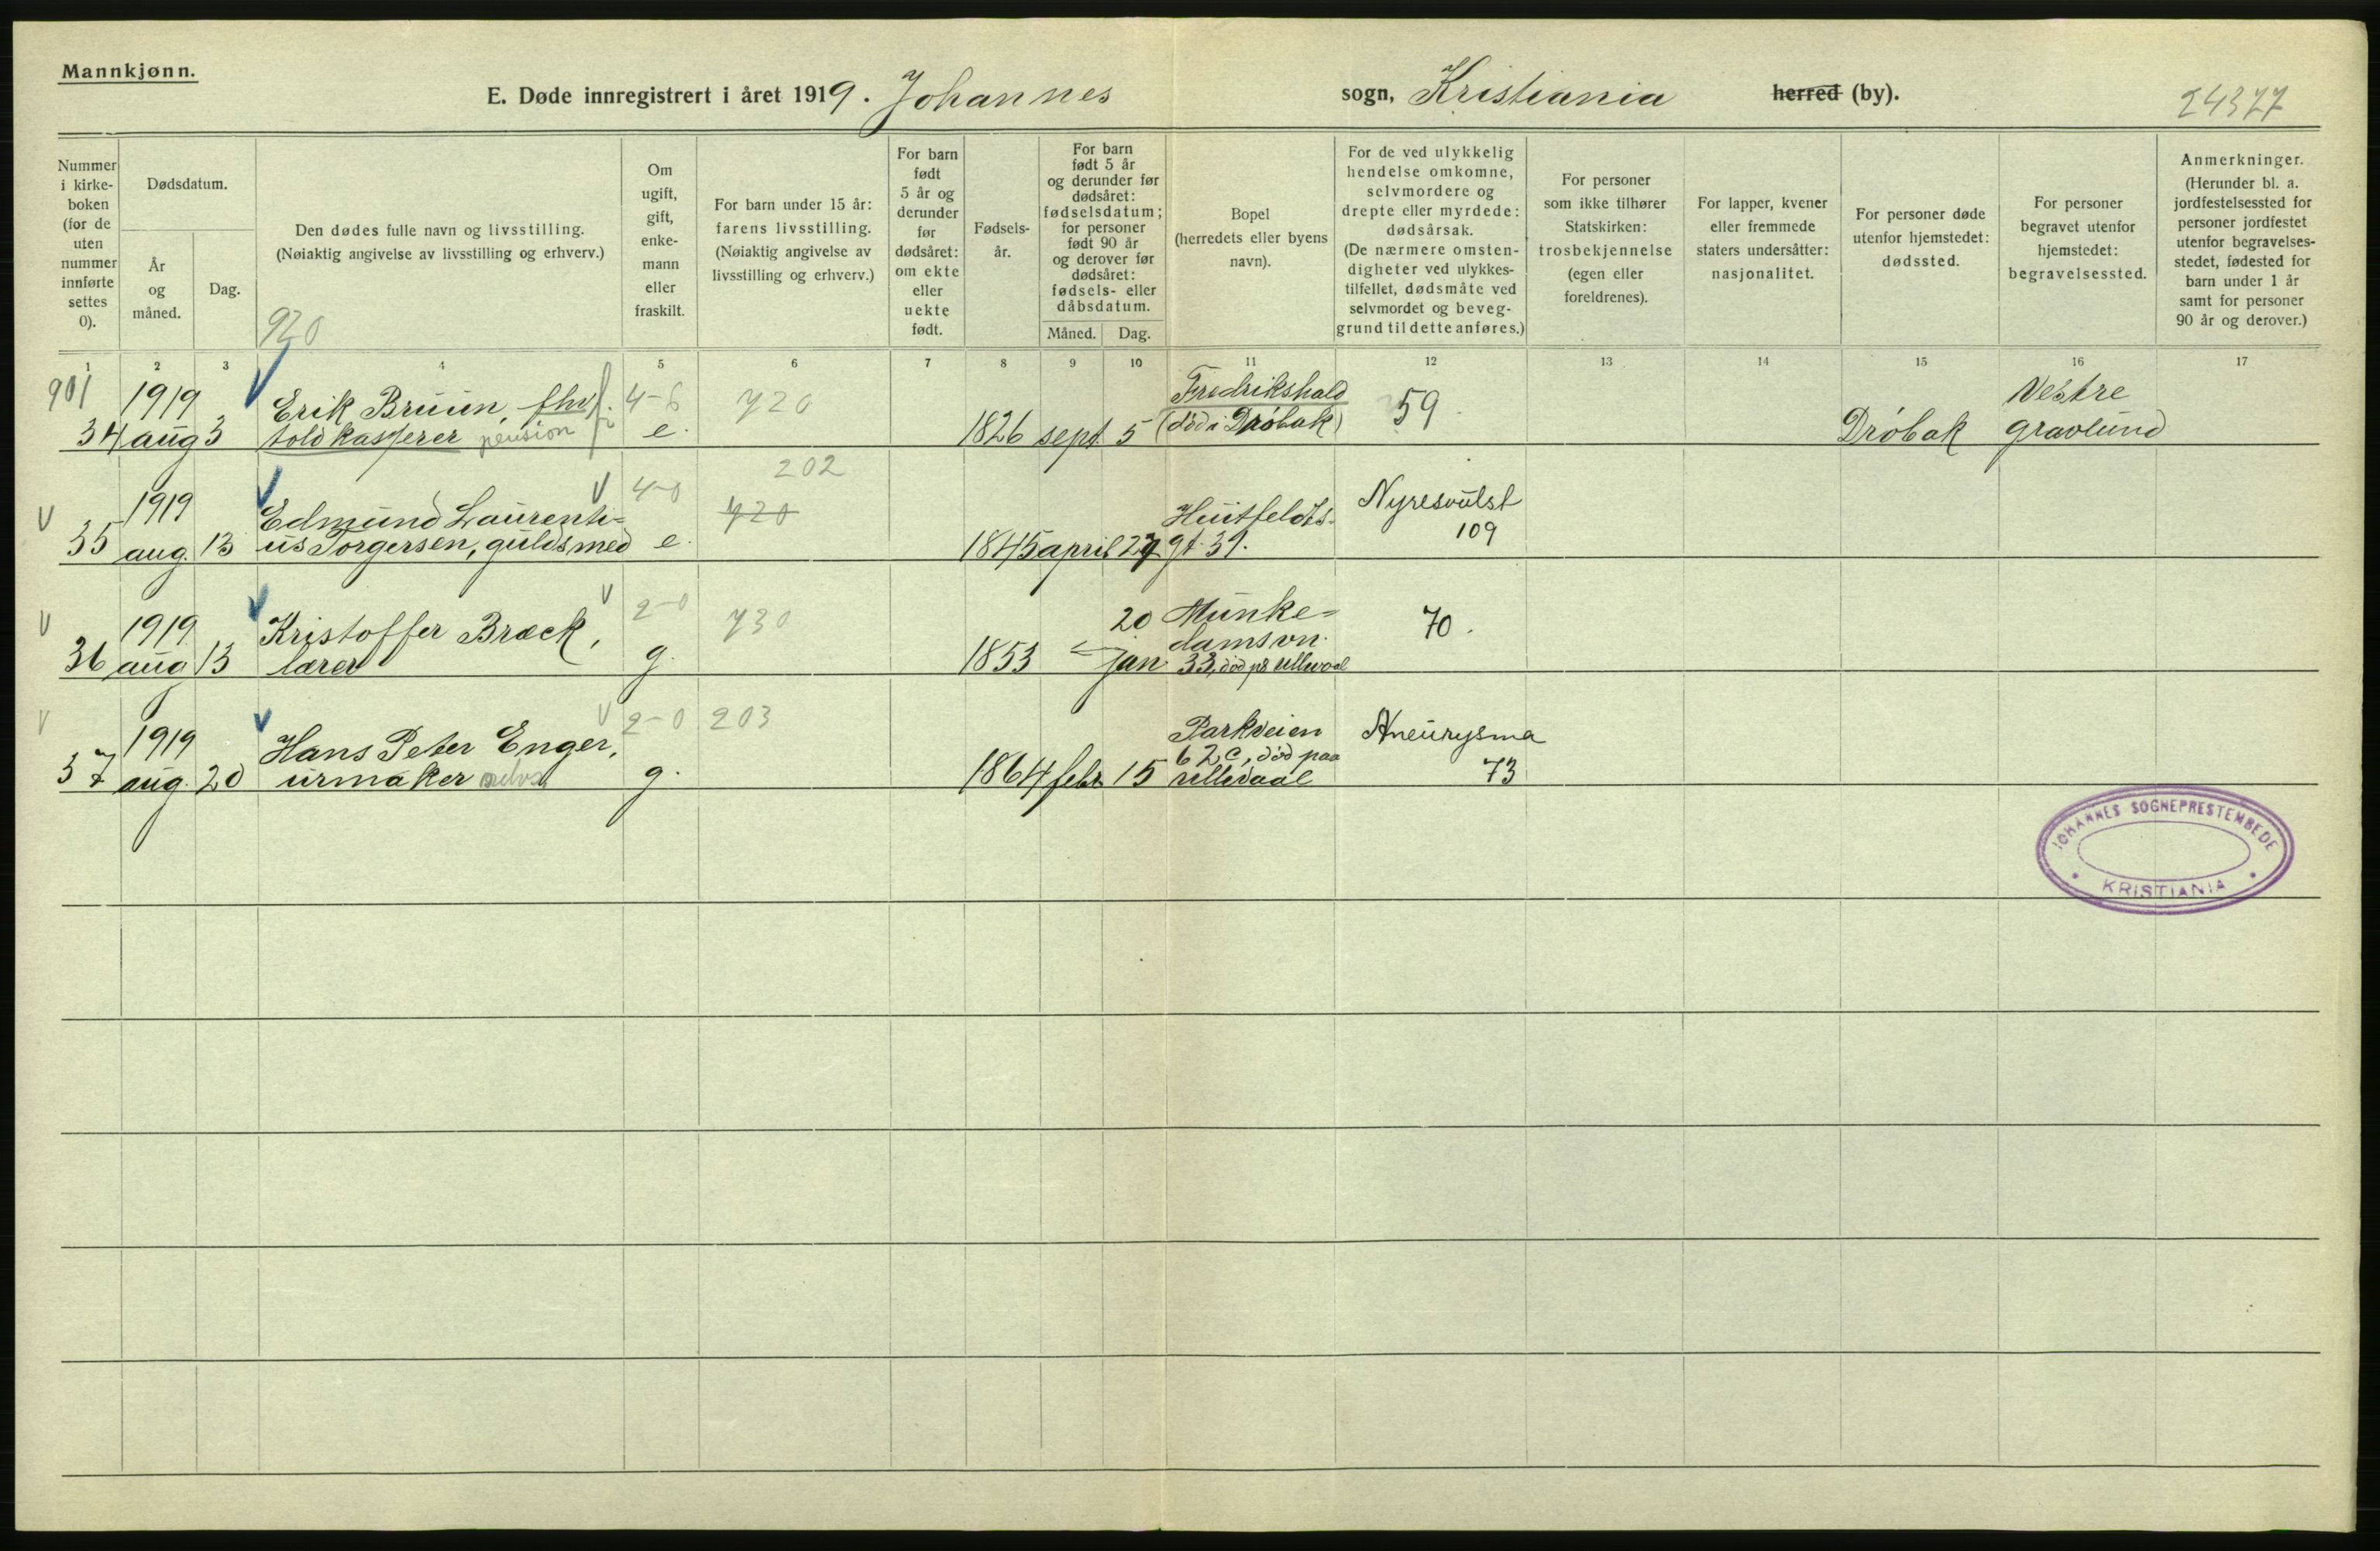 Mannkjønn.
E. Døde innregistrert i året 1919. Johannes sogn, Kristiania herred (by).
24377
Nummer
i kirke-
boken
(for de
uten
nummer
innførte
settes
0).
Dødsdatum.
År
og
måned.
Dag.
Den dødes fulle navn og livsstilling.
(Nøiaktig angivelse av livsstilling og erhverv.)
920
Om
ugift,
gift,
enke-
mann
eller
fraskilt.
For barn under 15 år:
farens livsstilling.
(Nøiaktig angivelse av
livsstilling og erhverv.)
For barn
født
5 år og
derunder
før
dødsåret:
om ekte
eller
uekte
født.
Fødsels-
år.
For barn
født 5 år
og derunder før
dødsåret:
fødselsdatum;
for personer
født 90 år
og derover før
dødsåret:
fødsels- eller
dåbsdatum.
Måned.
Dag.
Bopel
(herredets eller byens
navn).
For de ved ulykkelig
hendelse omkomne,
selvmordere og
drepte eller myrdede:
dødsårsak.
(De nærmere omsten-
digheter ved ulykkes-
tilfellet, dødsmåte ved
selvmordet og beveg-
grund til dette anføres.)
For personer
som ikke tilhører
Statskirken:
trosbekjennelse
(egen eller
foreldrenes).
For lapper, kvener
eller fremmede
staters undersåtter:
nasjonalitet.
For personer døde
utenfor hjemstedet:
dødssted.
For personer
begravet utenfor
hjemstedet:
begravelsessted.
Anmerkninger.
(Herunder bl. a.
jordfestelsessted for
personer jordfestet
utenfor begravelses-
stedet, fødested for
barn under 1 år
samt for personer
90 år og derover.)
1 2 3 4 5 6 7 8 9 10 11 12 13 14 15 16 17
901 1919 Erik Bruun, fhv. 4-6 720 Fredrikshald 59 Vestre
34 aug 3 toldkasserer pension e. 1826 sept. 5 (död i Dröbak) Dröbak gravlund
202
1919 Edmund Laurenti= 4-0 720 Huitfeldts- Nyresvulst
35 aug. 13 us Torgersen, guldsmed e. 1845 april 27 gt. 39. 109
1919 Kristoffer Bræck, 2-0 730 20 Munke= 70.
damsvn.
36 aug 13 lærer g. 1853 jan 33, död på Ullevaal
1919 Hans Peter Enger, 2-0 203 Parkveien Aneurysma
62c, död paa
37 aug. 20 urmaker selvst g. 1864 febr. 15 Ullevaal 73
JOHANNES SOGNEPRESTEMBEDE
KRISTIANIA